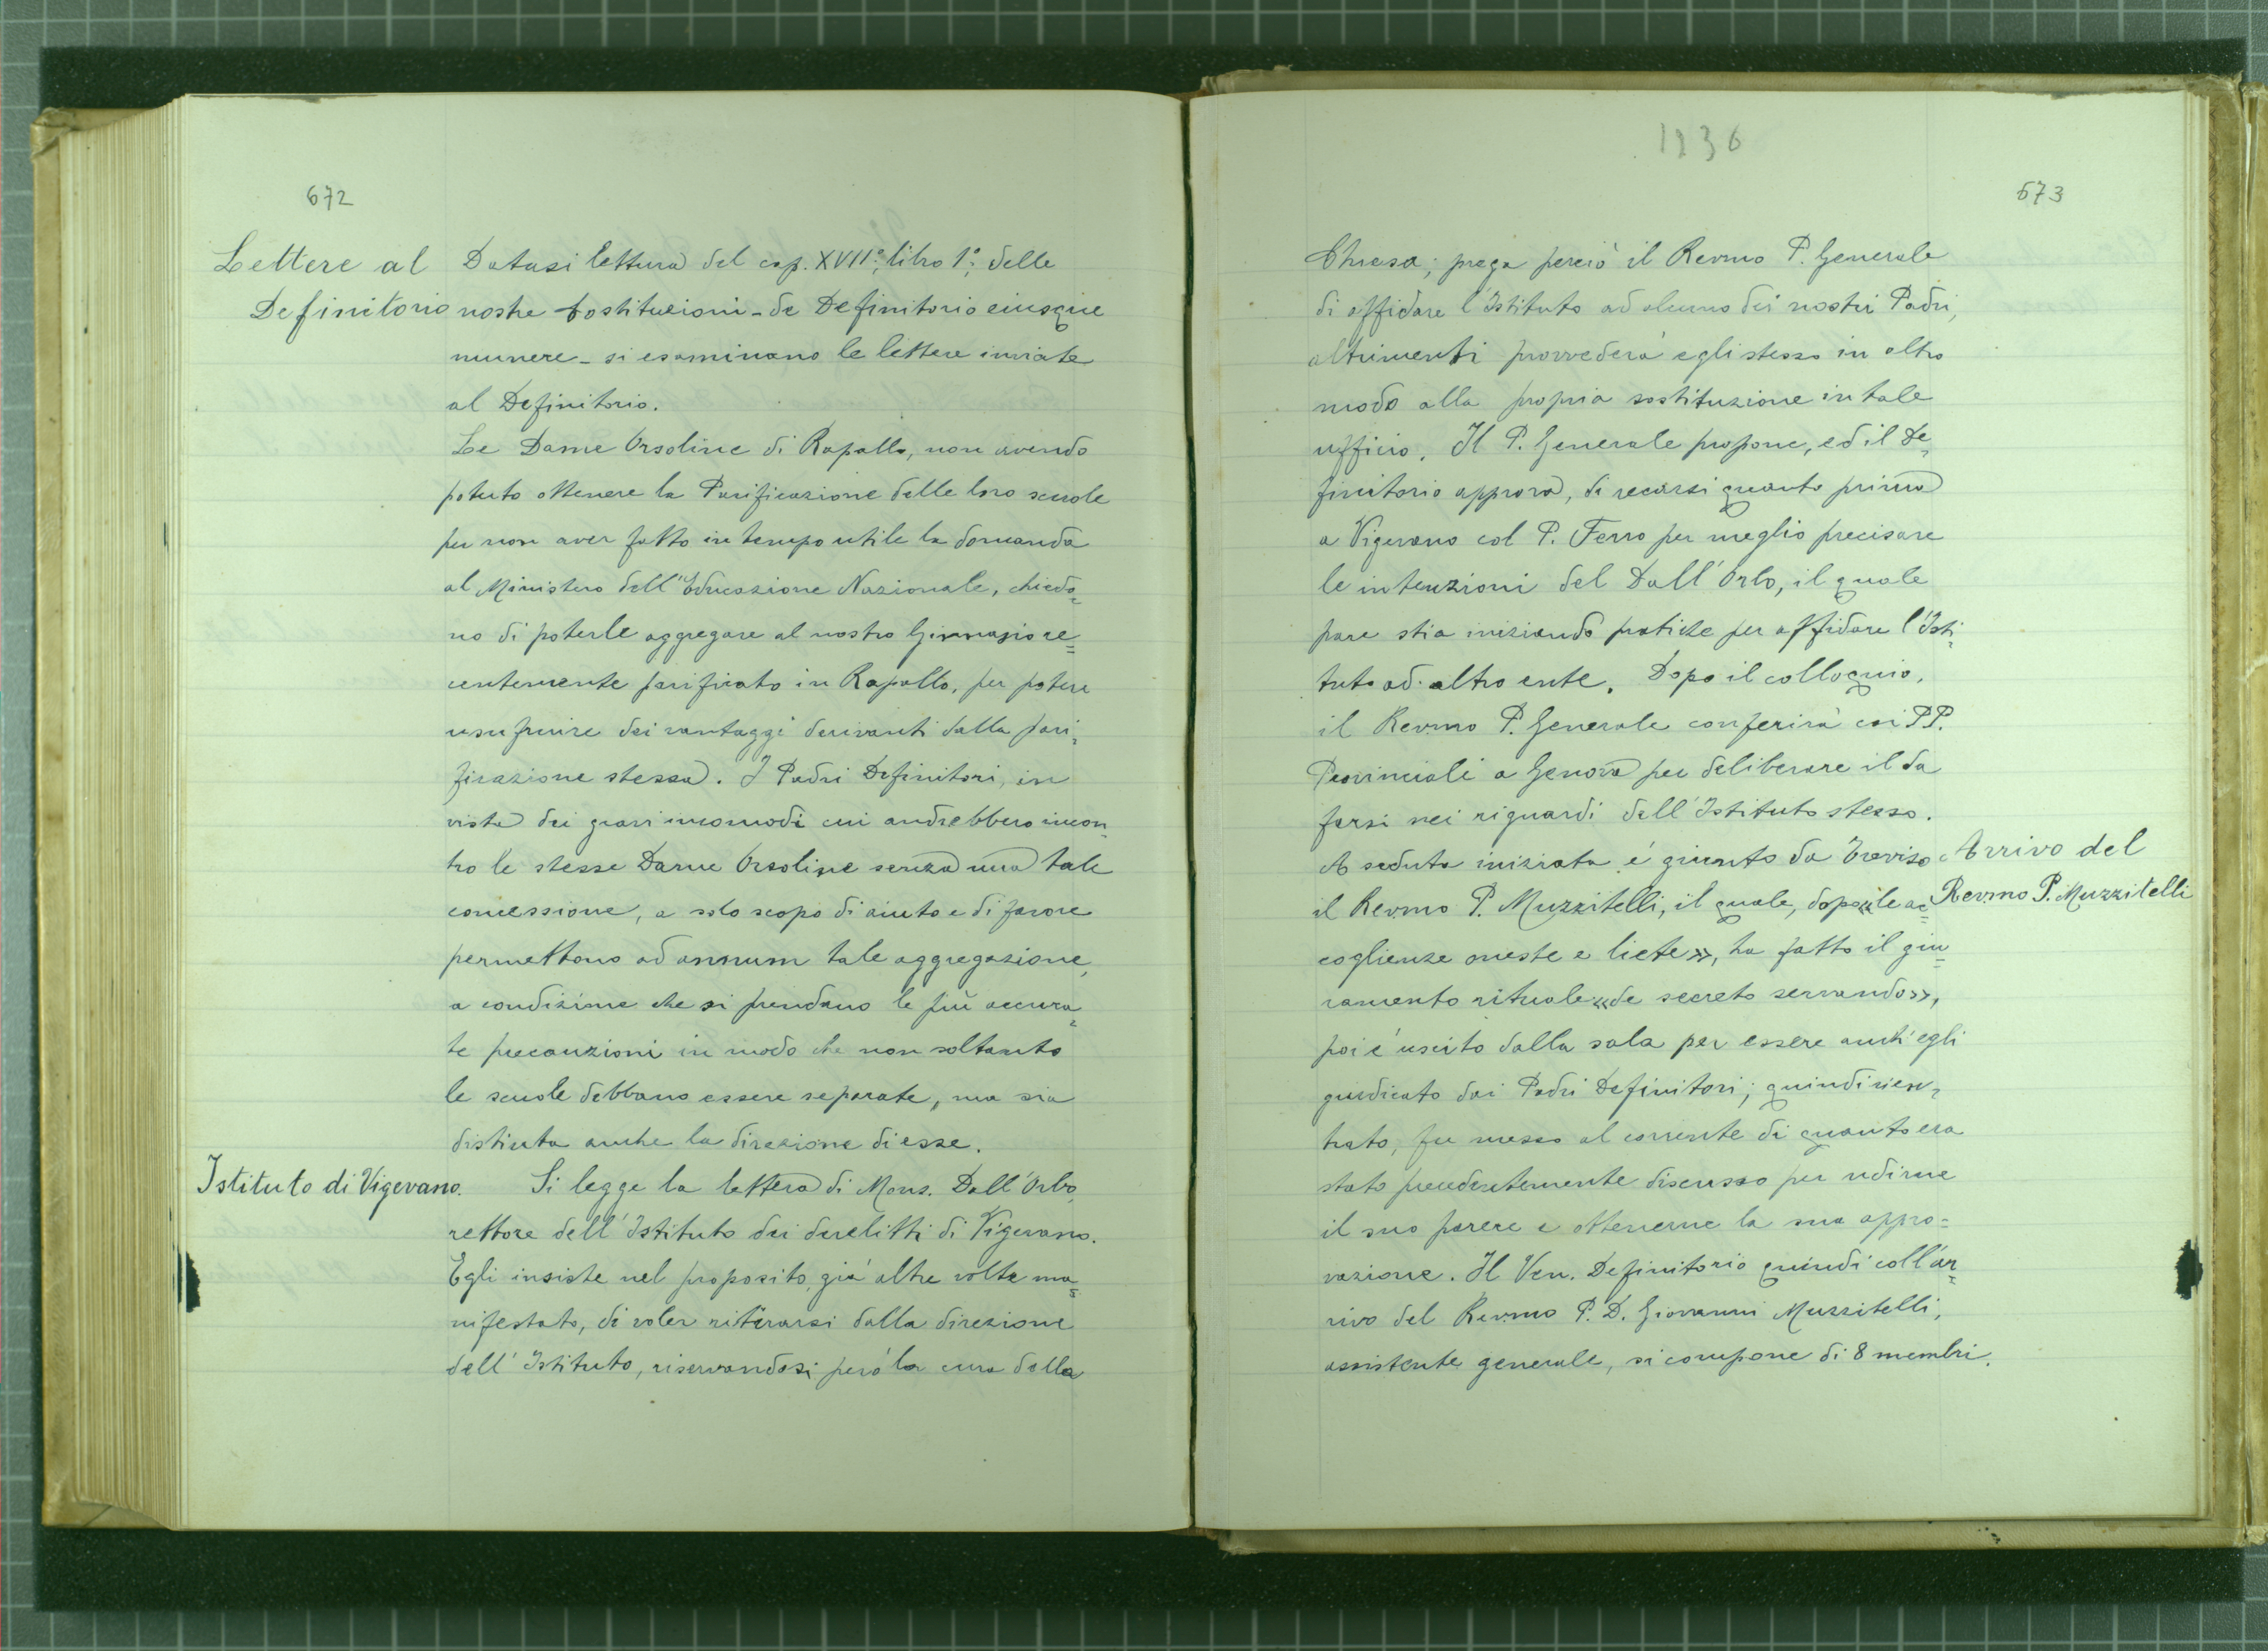 672
Lettere al
Definitorio
Datasi lettura del cap. XVII°, libro 1°, delle
nostre Costituzioni - de Definitorio eiusque
munere - si esaminano le lettere inviate
al Definitorio.
Le Dame Orsoline di Rapallo, non avendo
potuto ottenere la Parificazione delle loro scuole
per non aver fatto in tempo utile la domanda
al Ministero dell'Educazione Nazionale, chiedo-
no di poterle aggregare al nostro Ginnasio re=
centemente parificato in Rapallo, per potere
usufruire dei vantaggi derivanti dalla pari-
ficazione stessa. I Padri Definitori, in
vista dei gravi incomodi cui andrebbero incon-
tro le stesse Dame Orsoline senza una tale
concessione, a solo scopo di aiuto e di favore
permettono ad annum tale aggregazione,
a condizione che si prendano le più accura-
te precauzioni in modo che non soltanto
le scuole debbano essere separate, ma sia
distinta anche la direzione di esse.
Istituto di Vigevano.
Si legge la lettera di Mons. Dall'Orbo,
rettore dell'Istituto dei derelitti di Vigevano.
Egli insiste nel proposito, già altre volte ma=
nifestato, di voler ritirarsi dalla direzione
dell'Istituto, riservandosi però la cura della
1936
673
Chiesa; prega perciò il Rev.mo P. Generale
di affidare l'Istituto ad alcuno dei nostri Padri,
altrimenti provvederà egli stesso in altro
modo alla propria sostituzione in tale
ufficio. Il P. Generale propone, ed il De-
finitorio approva, di recarsi quanto prima
a Vigevano col P. Ferro per meglio precisare
le intenzioni del Dall'Orbo, il quale
pare stia iniziando pratiche per affidare l'Isti-
tuto ad altro ente. Dopo il colloquio,
il Rev.mo P. Generale conferirà coi PP.
Provinciali a Genova per deliberare il da
farsi nei riguardi dell'Istituto stesso.
A seduta iniziata, é giunto da Treviso
il Rev.mo P. Muzzitelli, il quale, dopo «le ac=
Arrivo del
Rev.mo P. Muzzitelli
coglienze oneste e liete», ha fatto il giu=
ramento rituale «de secreto servando»,
poi é uscito dalla sala per essere anch'egli
giudicato dai Padri Definitori; quindi rien-
trato, fu messo al corrente di quanto era
stato precedentemente discusso per udirne
il suo parere e ottenerne la sua appro=
vazione. Il Ven. Definitorio quindi coll'ar=
rivo del Rev.mo P. D. Giovanni Muzzitelli,
assistente generale, si compone di 8 membri.